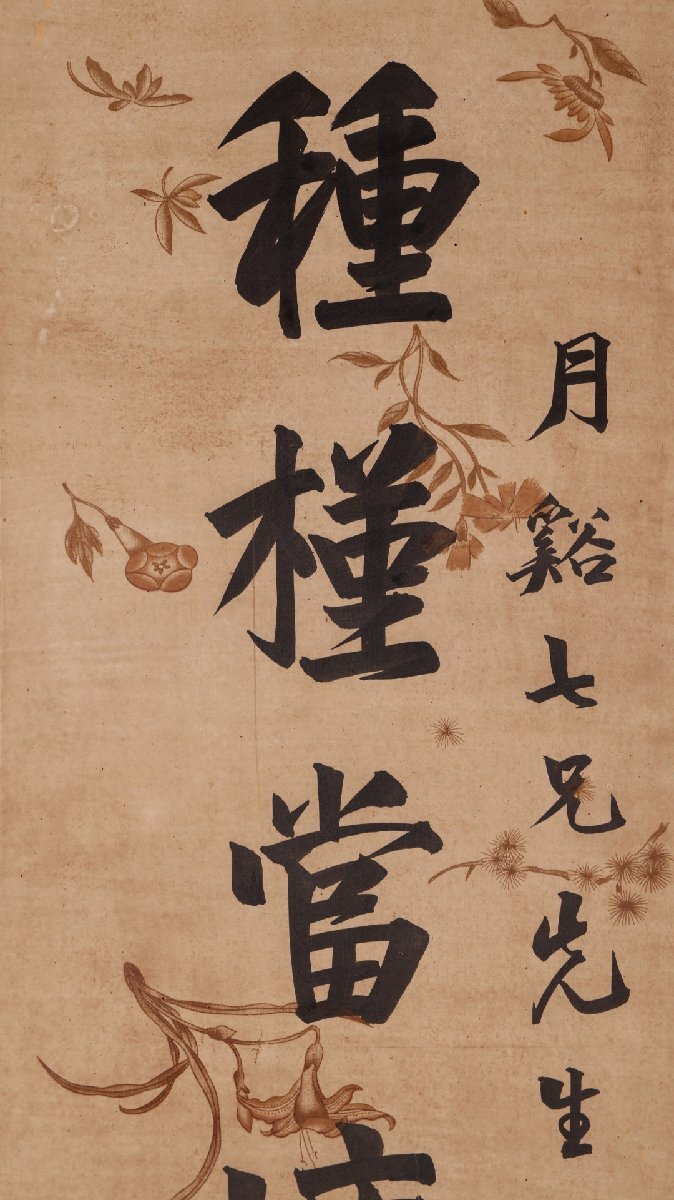 月谿七兄先生
種槿當